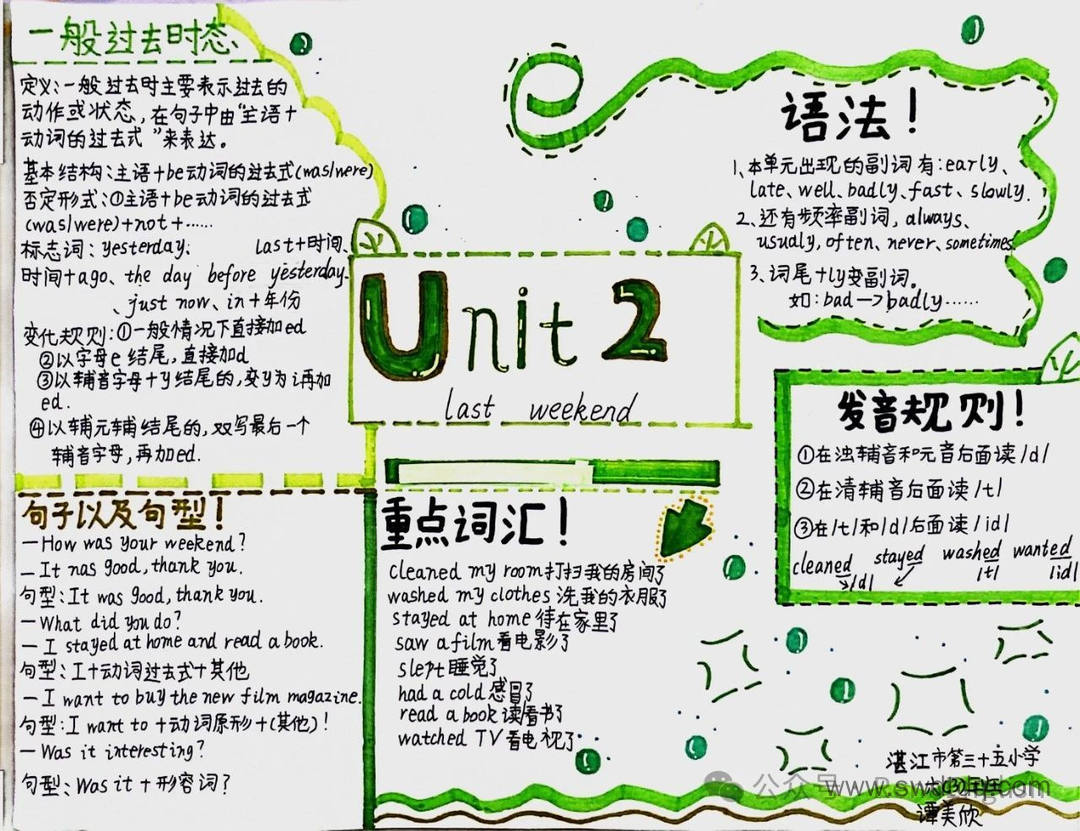 一般过去时态
定义:一般过去时主要表示过去的
动作或状态,在句子中由"主语+
动词的过去式"来表达。
基本结构:主语+be动词的过去式(was/were)
否定形式:①主语+be动词的过去式
(was/were)+not+……
标志词:yesterday、 last+时间、
时间+ago、the day before yesterday
、just now、in+年份
变化规则:①一般情况下直接加ed
②以字母e结尾,直接加d
③以辅音字母+y结尾的,变y为i再加
ed.
④以辅元辅结尾的,双写最后一个
辅音字母,再加ed.
句子以及句型!
—How was your weekend?
—It nas good, thank you.
句型:It was good, thank you.
—What did you do?
—I stayed at home and read a book.
句型:I+动词过去式+其他
—I want to buy the new film magazine.
句型:I want to +动词原形+(其他)!
—Was it interesting?
句型:Was it +形容词?
Unit 2
last weekend
重点词汇!
cleaned my room打扫我的房间了
washed my clothes 洗我的衣服了
stayed at home 待在家里了
saw a film看电影了
slept睡觉了
had a cold感冒了
read a book读看书了
watched TV看电视了
语法!
1、本单元出现的副词有:early、
late、well、badly、fast、slowly.
2、还有频率副词,always、
usually, often、never、sometimes
3、词尾+ly变副词。
如:bad—>badly……
发音规则!
①在浊辅音和元音后面读/d/
②在清辅音后面读/t/
③在/t/和/d/后面读/id/
cleaned stayed washed wanted
/d/ /t/ /id/
湛江市第三十五小学
谭美欣
公众号